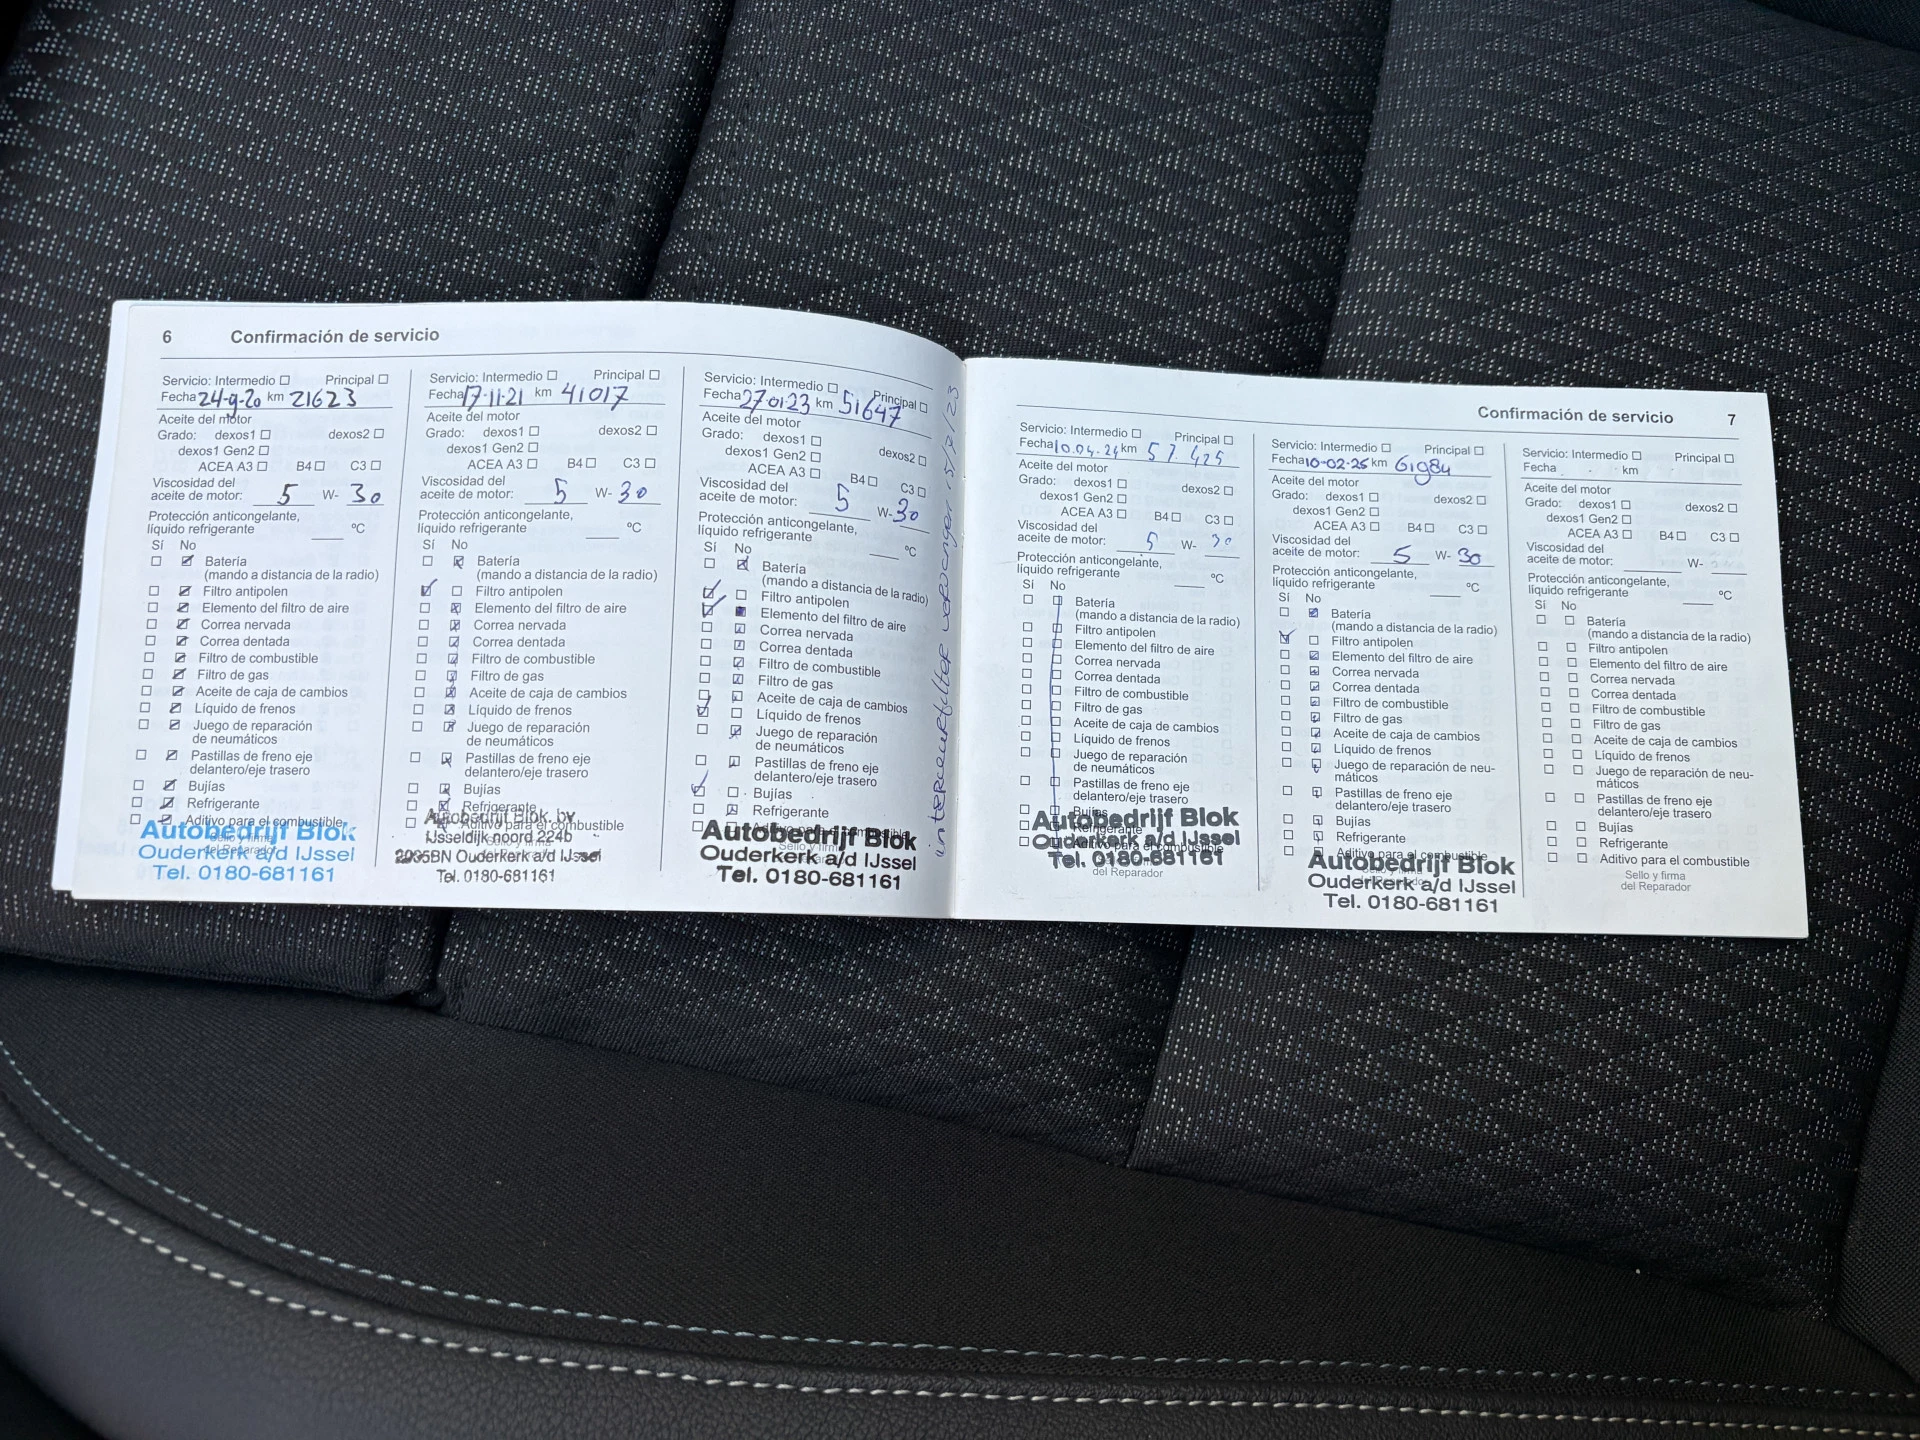 6 Confirmación de servicio
Servicio: Intermedio ☐ Principal ☐
Fecha 24-9-20 km 21623
Aceite del motor
Grado: dexos1 ☐ dexos2 ☐
dexos1 Gen2 ☐
ACEA A3 ☐ B4 ☐ C3 ☐
Viscosidad del
aceite de motor: 5 W- 30
Protección anticongelante,
líquido refrigerante ____ ºC
Sí No
Batería
(mando a distancia de la radio)
Filtro antipolen
Elemento del filtro de aire
Correa nervada
Correa dentada
Filtro de combustible
Filtro de gas
Aceite de caja de cambios
Líquido de frenos
Juego de reparación
de neumáticos
Pastillas de freno eje
delantero/eje trasero
Bujías
Refrigerante
Aditivo para el combustible
Autobedrijf Blok
Ouderkerk a/d IJssel
Tel. 0180-681161
Servicio: Intermedio ☐ Principal ☐
Fecha 17-11-21 km 41017
Aceite del motor
Grado: dexos1 ☐ dexos2 ☐
dexos1 Gen2 ☐
ACEA A3 ☐ B4 ☐ C3 ☐
Viscosidad del
aceite de motor: 5 W- 30
Protección anticongelante,
líquido refrigerante ____ ºC
Sí No
Batería
(mando a distancia de la radio)
Filtro antipolen
Elemento del filtro de aire
Correa nervada
Correa dentada
Filtro de combustible
Filtro de gas
Aceite de caja de cambios
Líquido de frenos
Juego de reparación
de neumáticos
Pastillas de freno eje
delantero/eje trasero
Bujías
Refrigerante
Aditivo para el combustible
Autobedrijf Blok bv
IJsseldijk noord 224b
2935BN Ouderkerk a/d IJssel
Tel. 0180-681161
Servicio: Intermedio ☐ Principal ☐
Fecha 27-01-23 km 51647
Aceite del motor
Grado: dexos1 ☐ dexos2 ☐
dexos1 Gen2 ☐
ACEA A3 ☐ B4 ☐ C3 ☐
Viscosidad del
aceite de motor: 5 W- 30
Protección anticongelante,
líquido refrigerante ____ ºC
Sí No
Batería
(mando a distancia de la radio)
Filtro antipolen
Elemento del filtro de aire
Correa nervada
Correa dentada
Filtro de combustible
Filtro de gas
Aceite de caja de cambios
Líquido de frenos
Juego de reparación
de neumáticos
Pastillas de freno eje
delantero/eje trasero
Bujías
Refrigerante
Aditivo para el combustible
Sello y firma
Autobedrijf Blok
Ouderkerk a/d IJssel
Tel. 0180-681161
interieurfilter vervangen
Confirmación de servicio 7
Servicio: Intermedio ☐ Principal ☐
Fecha 10.04.24 km 57.425
Aceite del motor
Grado: dexos1 ☐ dexos2 ☐
dexos1 Gen2 ☐
ACEA A3 ☐ B4 ☐ C3 ☐
Viscosidad del
aceite de motor: 5 W- 30
Protección anticongelante,
líquido refrigerante ____ ºC
Sí No
Batería
(mando a distancia de la radio)
Filtro antipolen
Elemento del filtro de aire
Correa nervada
Correa dentada
Filtro de combustible
Filtro de gas
Aceite de caja de cambios
Líquido de frenos
Juego de reparación
de neumáticos
Pastillas de freno eje
delantero/eje trasero
Bujías
Refrigerante
Aditivo para el combustible
Autobedrijf Blok
Ouderkerk a/d IJssel
Tel. 0180-681161
del Reparador
Servicio: Intermedio ☐ Principal ☐
Fecha 10-02-25 km 61984
Aceite del motor
Grado: dexos1 ☐ dexos2 ☐
dexos1 Gen2 ☐
ACEA A3 ☐ B4 ☐ C3 ☐
Viscosidad del
aceite de motor: 5 W- 30
Protección anticongelante,
líquido refrigerante ____ ºC
Sí No
Batería
(mando a distancia de la radio)
Filtro antipolen
Elemento del filtro de aire
Correa nervada
Correa dentada
Filtro de combustible
Filtro de gas
Aceite de caja de cambios
Líquido de frenos
Juego de reparación de neu-
máticos
Pastillas de freno eje
delantero/eje trasero
Bujías
Refrigerante
Aditivo para el combustible
Autobedrijf Blok
Ouderkerk a/d IJssel
Tel. 0180-681161
Servicio: Intermedio ☐ Principal ☐
Fecha km
Aceite del motor
Grado: dexos1 ☐ dexos2 ☐
dexos1 Gen2 ☐
ACEA A3 ☐ B4 ☐ C3 ☐
Viscosidad del
aceite de motor: ____ W- ____
Protección anticongelante,
líquido refrigerante ____ ºC
Sí No
Batería
(mando a distancia de la radio)
Filtro antipolen
Elemento del filtro de aire
Correa nervada
Correa dentada
Filtro de combustible
Filtro de gas
Aceite de caja de cambios
Líquido de frenos
Juego de reparación de neu-
máticos
Pastillas de freno eje
delantero/eje trasero
Bujías
Refrigerante
Aditivo para el combustible
Sello y firma
del Reparador